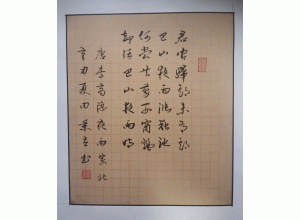 君問歸期未有期
巴山夜雨漲秋池
何當共剪西窗燭
却話巴山夜雨時
唐李商隱夜雨寄北
夏田書